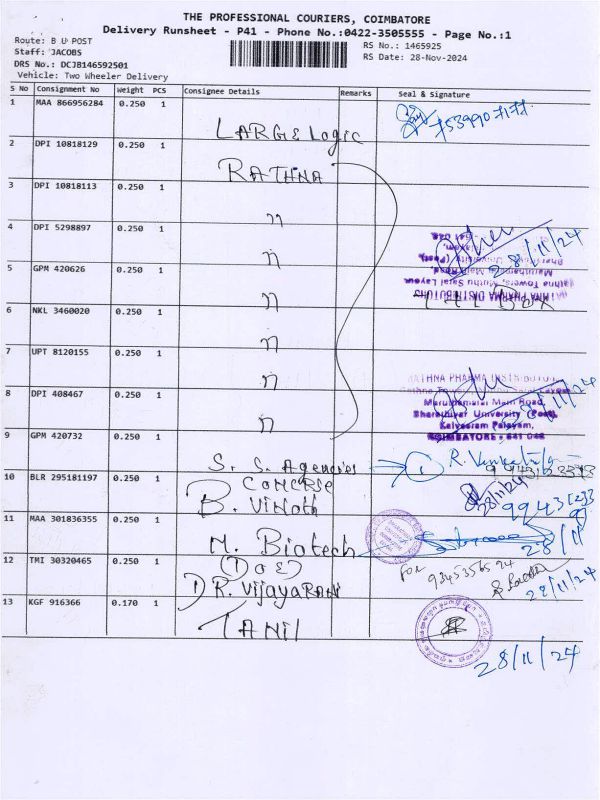 THE PROFESSIONAL COURIERS, COIMBATORE
Delivery Runsheet - P41 - Phone No.:0422-3505555 - Page No.:1
Route: B U POST
RS No.: 1465925
Staff: JACOBS
RS Date: 28-Nov-2024
DRS No.: DCJB146592501
Vehicle: Two Wheeler Delivery
S No Consignment No Weight PCS Consignee Details Remarks Seal & Signature
1 MAA 866956284 0.250 1
LARGE Logic
2 DPI 10818129 0.250 1
RATHNA
3 DPI 10818113 0.250 1
"
4 DPI 5298897 0.250 1
" 28/11/24
5 GPM 420626 0.250 1
"
6 NKL 3460020 0.250 1
"
7 UPT 8120155 0.250 1
"
RATHNA PHARMA DISTRIBUTORS
8 DPI 408467 0.250 1
Maruthamalai Main Road,
" Bharathiyar University (Post),
Kalveeram Palayam,
9 GPM 420732 0.250 1
COIMBATORE - 641 046
S. S. Agencies
10 BLR 295181197 0.250 1
B. Vinoth
28/11/24
11 MAA 301836355 0.250 1
M. Biotech
28/11
12 TMI 30320465 0.250 1
FOR
DR. VijayaRani
28/11/24
13 KGF 916366 0.170 1
TANil
28/11/24